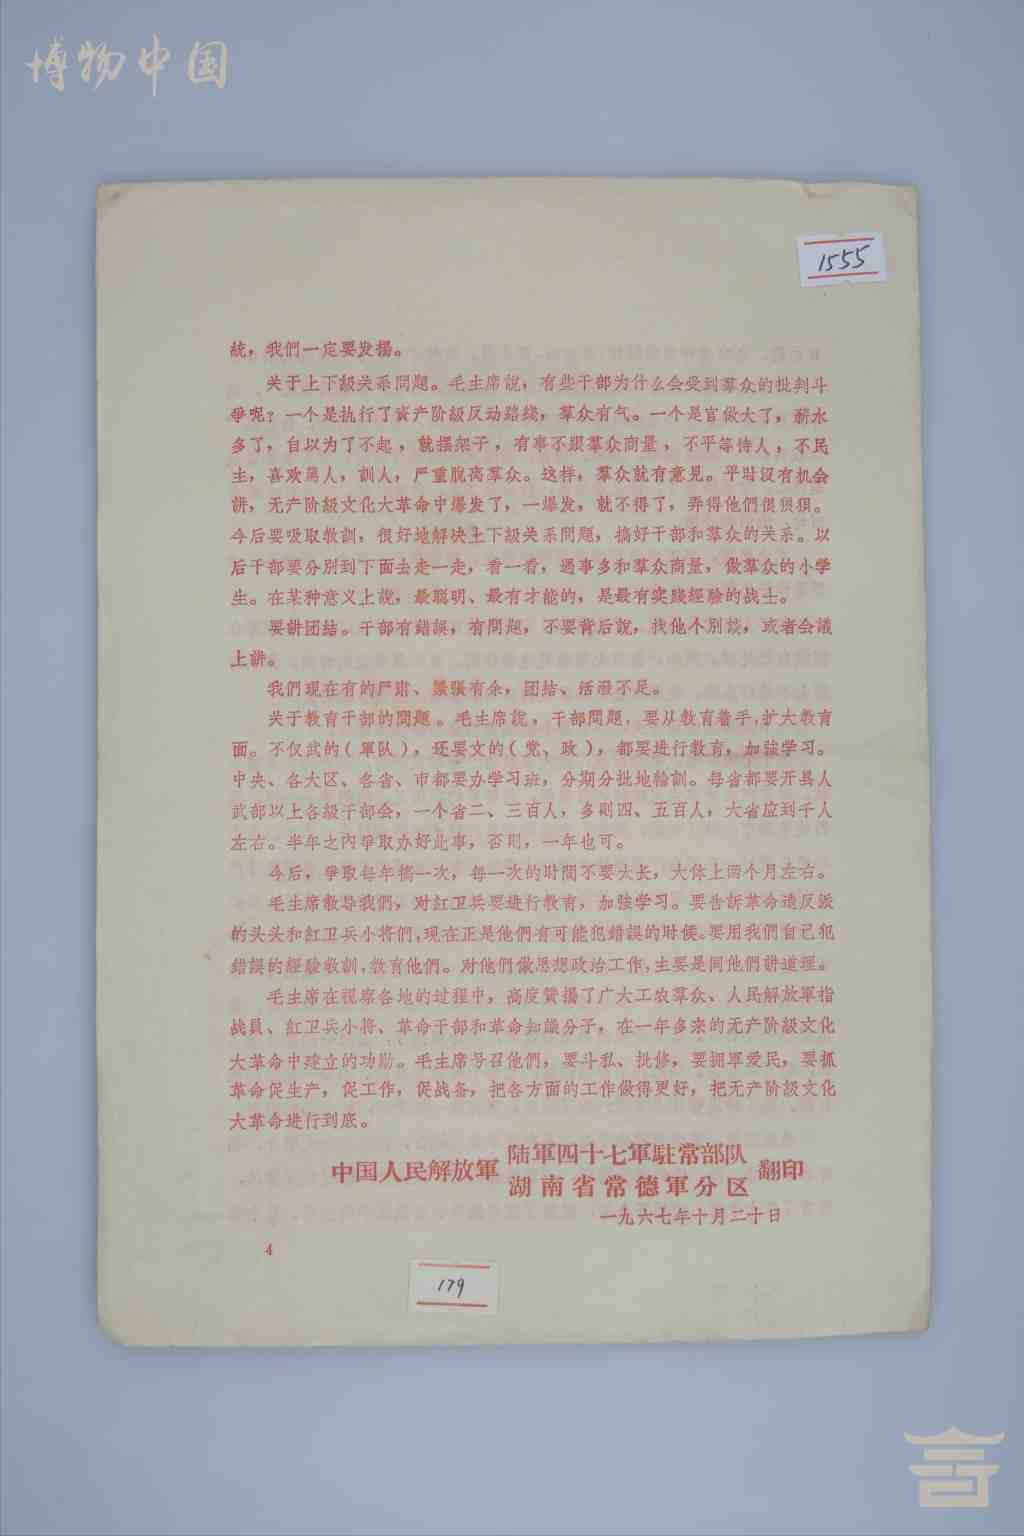 博物中国
1555
統，我們一定要发揚。
关于上下級关系問題。毛主席說，有些干部为什么会受到羣众的批判斗
爭呢？一个是执行了資产阶級反动路綫，羣众有气。一个是官做大了，薪水
多了，自以为了不起，就摆架子，有事不跟羣众商量，不平等待人，不民
主，喜欢罵人，訓人，严重脫离羣众。这样，羣众就有意見。平时沒有机会
讲，无产阶級文化大革命中爆发了，一爆发，就不得了，弄得他們很狼狽。
今后要吸取教訓，很好地解决上下級关系問題，搞好干部和羣众的关系。以
后干部要分别到下面去走一走，看一看，遇事多和羣众商量，做羣众的小学
生。在某种意义上說，最聪明、最有才能的，是最有实踐經驗的战士。
要讲团結。干部有錯誤，有問題，不要背后說，找他个别談，或者会議
上讲。
我們現在有的严肃、紧张有余，团結、活潑不足。
关于教育干部的問題。毛主席說，干部問題，要从教育着手，扩大教育
面。不仅武的（軍队），还要文的（党、政），都要进行教育，加強学习。
中央、各大区、各省、市都要办学习班，分期分批地輪訓。每省都要开县人
武部以上各級干部会，一个省二、三百人，多则四、五百人，大省应到千人
左右。半年之內爭取办好此事，否則，一年也可。
今后，爭取每年搞一次，每一次的时間不要太长，大体上两个月左右。
毛主席教导我們，对紅卫兵要进行教育，加強学习。要告訴革命造反派
的头头和紅卫兵小将們，現在正是他們有可能犯錯誤的时候。要用我們自己犯
錯誤的經驗教訓，教育他們。对他們做思想政治工作，主要是同他們讲道理。
毛主席在視察各地的过程中，高度贊揚了广大工农羣众、人民解放軍指
战員、紅卫兵小将、革命干部和革命知識分子，在一年多来的无产阶級文化
大革命中建立的功勛。毛主席号召他們，要斗私、批修，要拥軍爱民，要抓
革命促生产，促工作，促战备，把各方面的工作做得更好，把无产阶級文化
大革命进行到底。
中国人民解放軍 陆軍四十七軍駐常部队 翻印
湖南省常德軍分区
一九六七年十月二十日
4
179